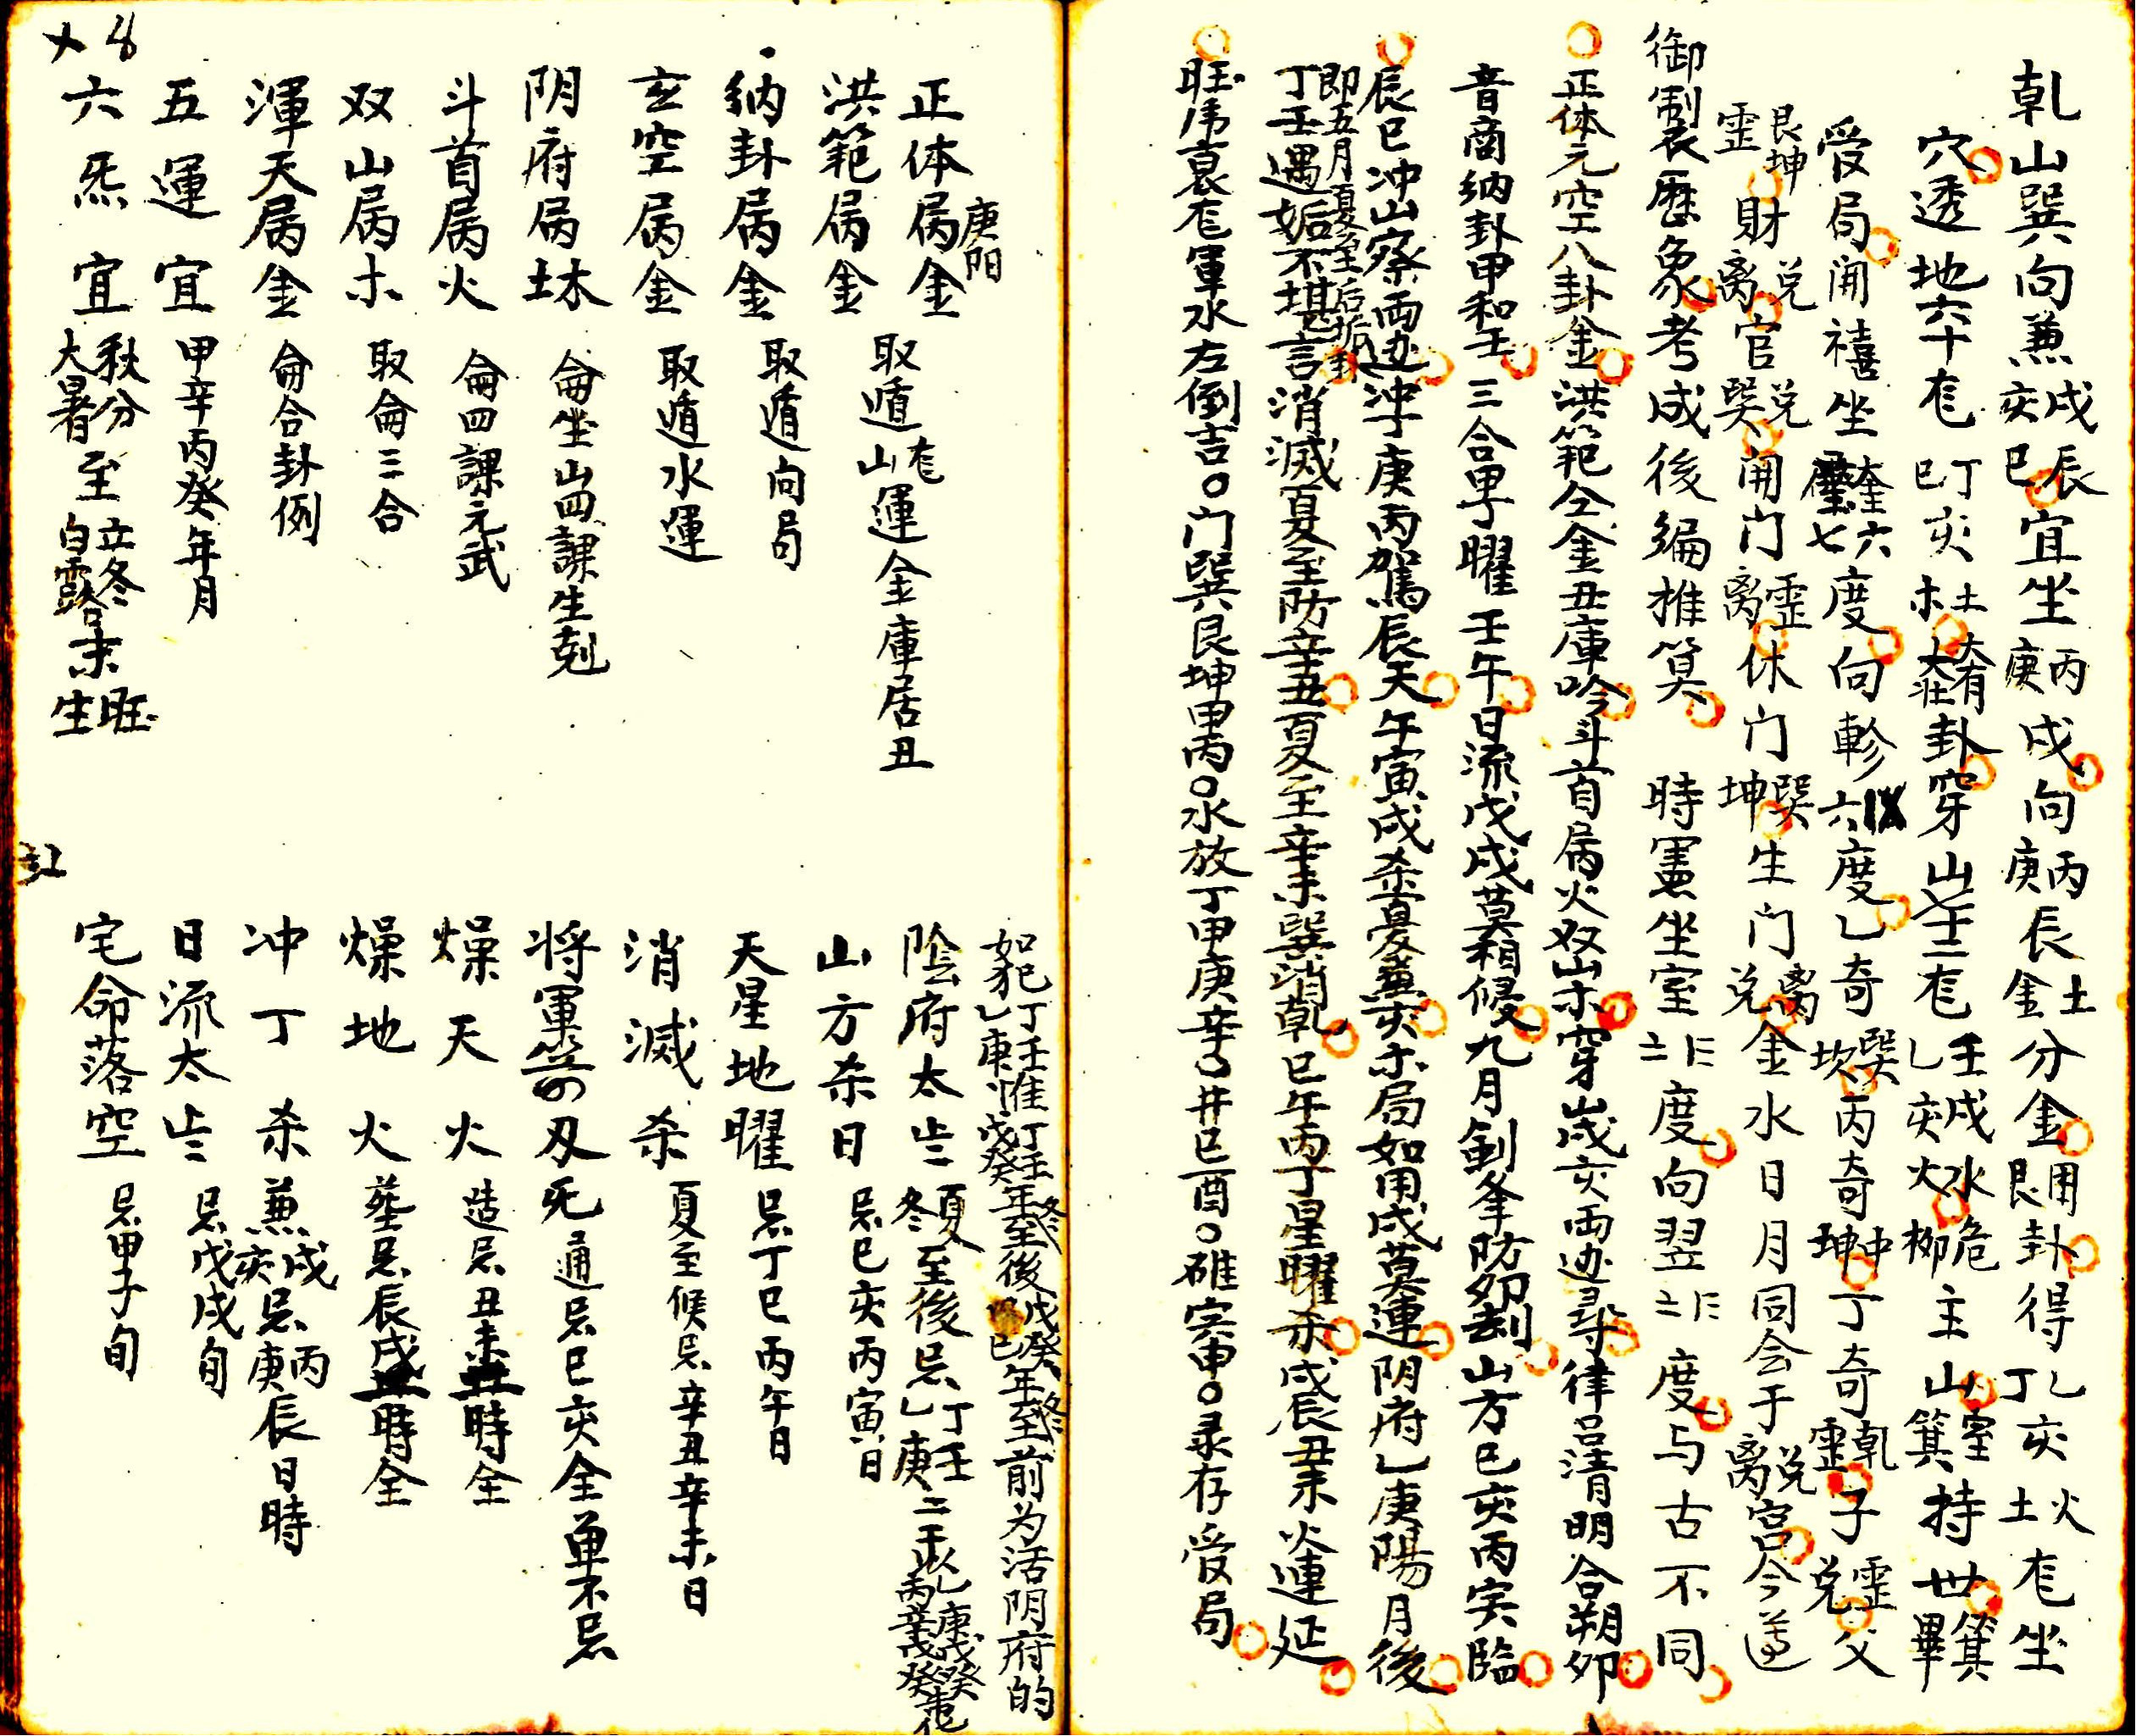 乾山巽向兼戌辰亥巳宜坐丙庚戌向丙庚辰土金分金用艮卦得乙丁亥火土毛坐
穴透地六十毛丁巳亥土木大有大壮卦穿山七十二毛壬戌乙亥水火危柳主山室箕持世箕畢
受局開禧坐奎六七度向軫六度乙奇巽坎丙奇中坤丁奇乾震子震兑父
艮坤震財兑离官兑巽開门震离休门巽坤生门离兑金水日月同会于兑离宫今遵
御制表歷象考成後編推算時憲坐室度向翌度与古不同
正体元空八卦金洪範仝金丑庫吟斗首属火双山木穿山戌亥両边尋律吕清明合朔卯
音商納卦甲和壬三合甲子曜壬午日流戊戌莫相侵九月剣夆防卯刦山方巳亥丙寅臨
辰巳冲山察両边冲丁庚丙駕辰天午寅戌杀憂兼亥木局如用戌莫連阴府乙庚陽月後
即五月夏至后姤卦
丁壬遇姤不堪言消滅夏至防辛丑夏至辛未巽消乾巳午丙丁星曜杀戌辰丑未火連延
旺禹衰毛軍水左倒吉〇门巽艮坤甲丙〇水放丁甲庚辛〇井巳酉〇碓寅申〇彔存受局
正体属金庚阳取遁山毛運金庫居丑
洪範属金
納卦属金取遁向局
玄空属金取遁水運
阴府属土木侖坐山四課生剋
斗首属火侖四課元武
双山属木取侖三合
渾天属金侖合卦例
五運宜甲辛丙癸年月
六炁宜秋分大暑至立冬白露末旺生
如犯丁壬乙庚惟丁壬戊癸年冬至後戊癸年冬至前为活阴府的
陰府太歲夏冬至後忌丁壬乙庚二干
山方杀日忌巳亥丙寅日
天星地曜忌丁巳丙午日
消滅杀夏至候忌辛丑辛未日
将軍箭刃死通忌巳亥全單不忌
燥天火造忌丑未時全
燥地火葬忌辰戌時全
冲丁杀兼戌亥忌丙庚辰日時
日流太歲忌戊戌旬
宅命落空忌甲子旬